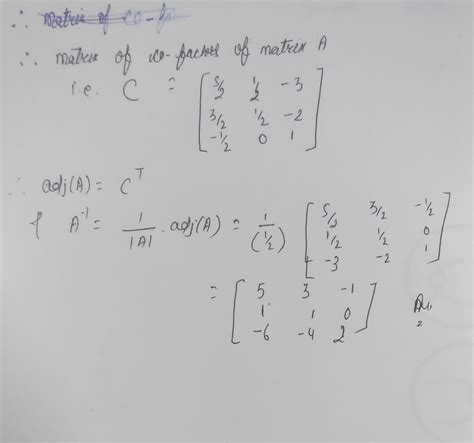 ∴ Matrix of co-
∴ matrix of co-factors of matrix A
i.e. C = [ 5/2 1/2 -3
3/2 1/2 -2
-1/2 0 1 ]
∴ adj(A) = C^T
& A^-1 = 1/|A| . adj(A) = 1/(1/2) [ 5/2 3/2 -1/2
1/2 1/2 0
-3 -2 1 ]
= [ 5 3 -1
1 1 0
-6 -4 2 ]